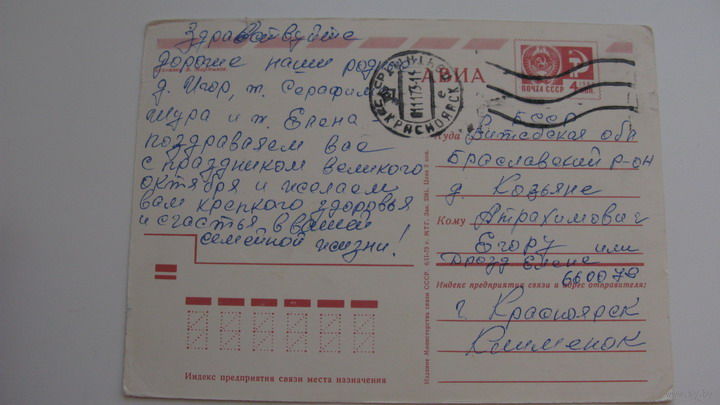 Здравствуйте
дорогие наши родные
д. Игор, т. Серафима
Шура и т. Елена
поздравляем вас
с праздником великого
октября и желаем
вам крепкого здоровья
и счастья в вашей
семейной жизни!
АВИА
ПОЧТА СССР
4
КРАСНОЯРСК
Куда БССР
Витебская обл
Браславский р-он
д. Козьяне
Кому Атрахимович
Егору или
Дрозд Елене
660079
Индекс предприятия связи и адрес отправителя:
г. Красноярск
Клименок
Индекс предприятия связи места назначения